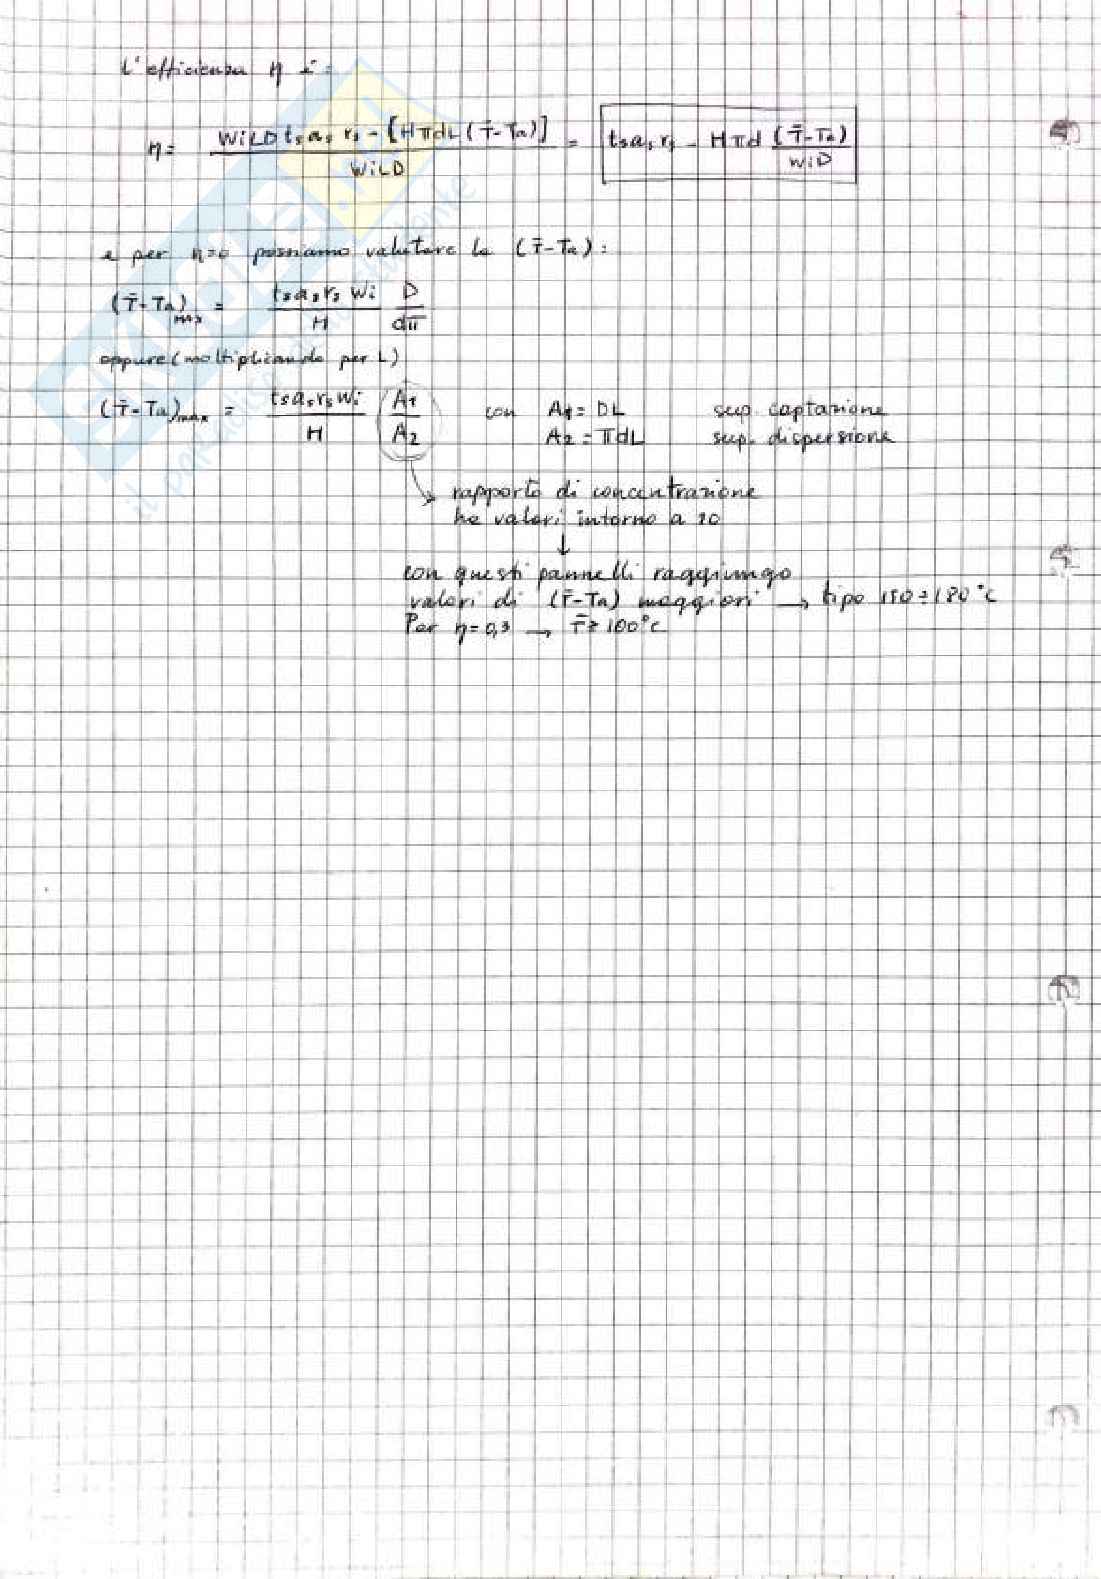 L'efficienza η è:
η = WiLD ts as rs - [HπdL (T̄-Ta)] / WiLD = ts as rs - Hπd (T̄-Ta) / WiD
e per η=0 possiamo valutare la (T̄-Ta):
(T̄-Ta)max = ts as rs Wi / H D / dπ
oppure (moltiplicando per L)
(T̄-Ta)max = ts as rs Wi / H A1 / A2 con A1 = DL sup. captazione
A2 = πdL sup. dispersione
→ rapporto di concentrazione
ha valori intorno a 10
↓
con questi pannelli raggiungo
valori di (T̄-Ta) maggiori → tipo 150÷180°C
Per η=0,3 → T̄ ≥ 100°C
il paradiso dello studente